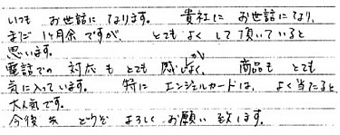 いつも お世話に なります。 貴社に お世話になり、
まだ 1ヶ月余 ですが、 とても よく して 頂いていると
思います。
電話での 対応も とても 感じよく、 商品も とても
気に入っています。 特に エンジェルカードは、よく当たると
大人気です。
今後も どうぞ よろしく お願い 致します。